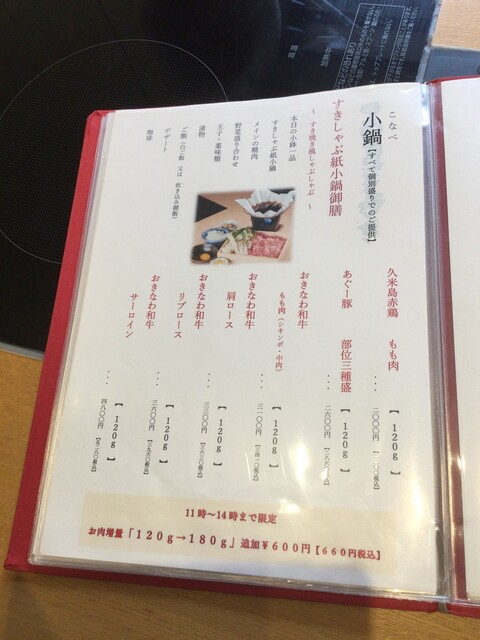 こなべ
小鍋【すべて個別盛りでのご提供】
すきしゃぶ紙小鍋御膳
～ すき焼き風しゃぶしゃぶ ～
本日の小鉢一品
すきしゃぶ紙小鍋
メインの精肉
野菜盛り合わせ
玉子・薬味類
漬物
ご飯（白ご飯 又は 炊き込み御飯）
デザート
珈琲
久米島赤鶏 もも肉 ... 【120g】 二〇〇〇円【二二〇〇税込】
あぐー豚 部位三種盛 ... 【120g】 二六〇〇円【二八六〇税込】
おきなわ和牛 もも肉（シキンボ・中肉） ... 【120g】 三一〇〇円【三四一〇税込】
おきなわ和牛 肩ロース ... 【120g】 三三〇〇円【三六三〇税込】
おきなわ和牛 リブロース ... 【120g】 三六〇〇円【三九六〇税込】
おきなわ和牛 サーロイン ... 【120g】 四八〇〇円【五二八〇税込】
11時～14時まで限定
お肉増量「120g→180g」追加￥600円【660円税込】